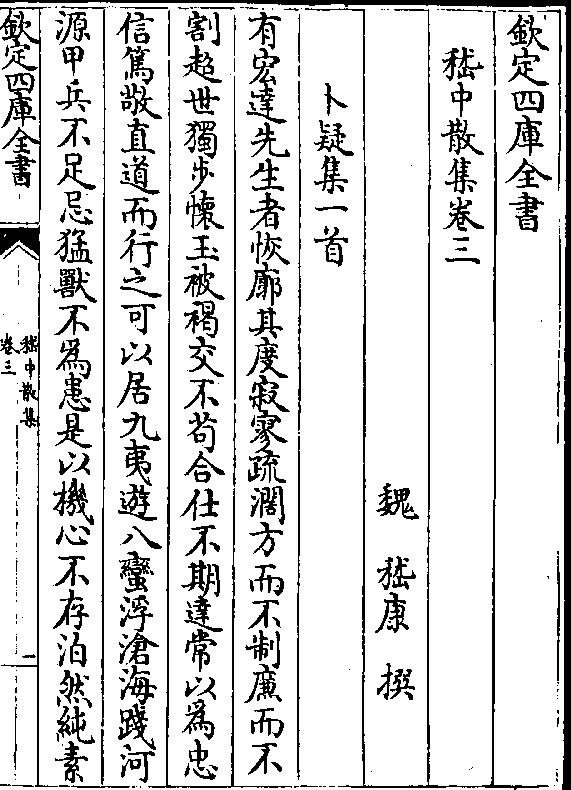 欽定四庫全書
嵇中散集卷三
魏 嵇康 撰
卜疑集一首
有宏達先生者恢廓其度寂寥疏濶方而不制廉而不
割超世獨步懷玉被褐交不茍合仕不期達常以為忠
信篤敬直道而行之可以居九夷遊八蠻浮滄海踐河
源甲兵不足忌猛獸不為患是以機心不存泊然純素
欽定四庫全書
嵇中散集
卷三
一